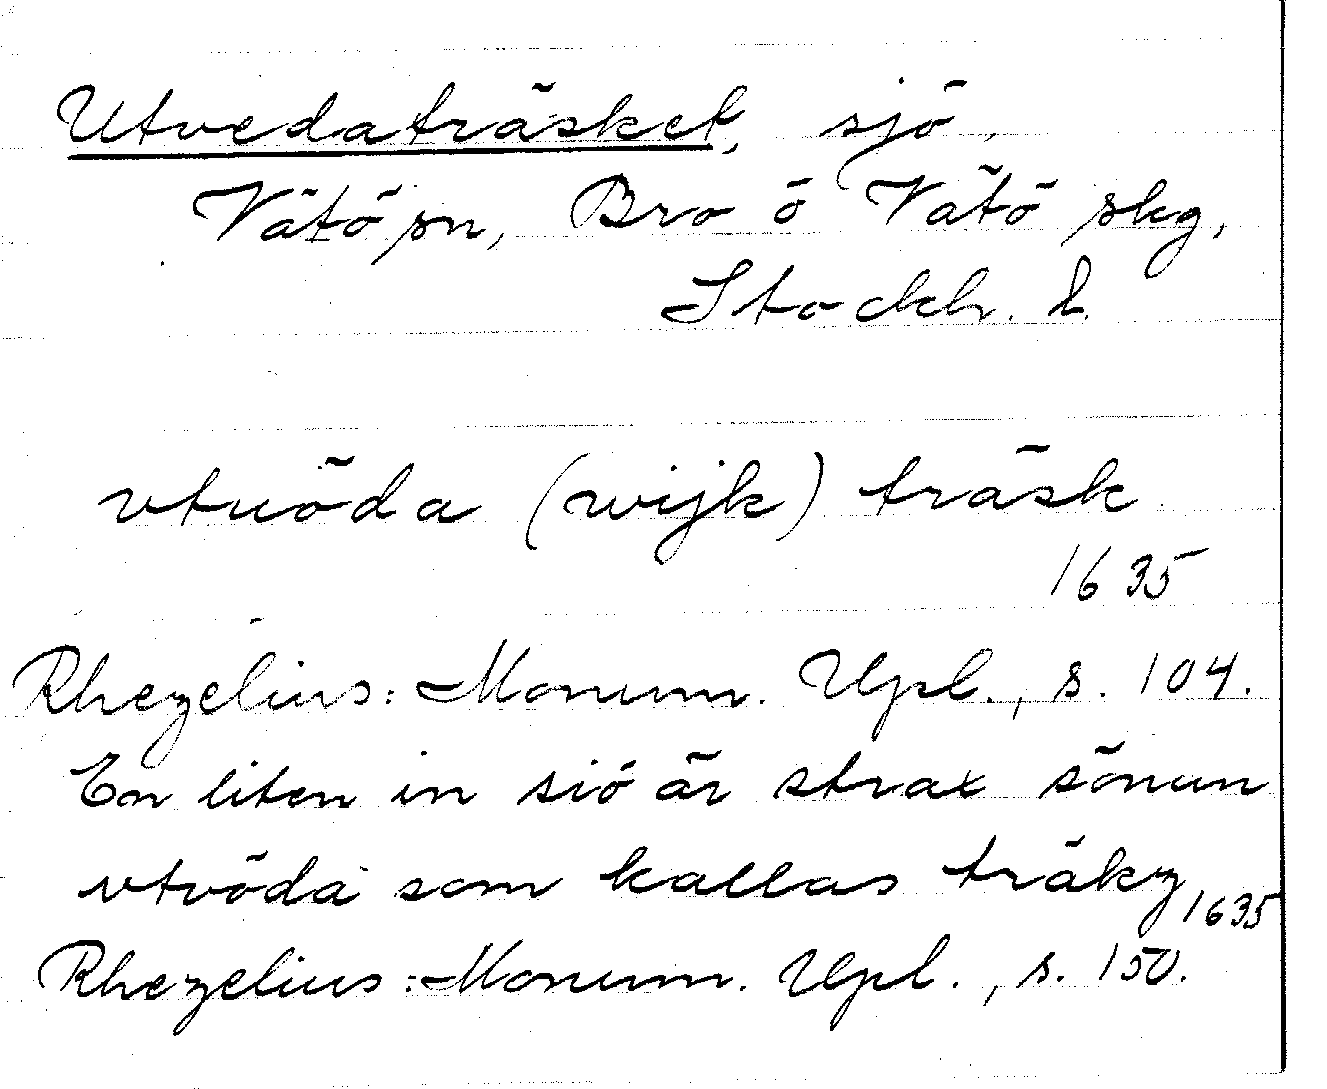 Utvedaträsket, sjö,
Vätö sn, Bro o Vätö skg,
Stockh. l.
vtuöda (wijk) träsk
1635
Rhezelius: Monum. Upl., s. 104.
En liten in siö är strax sönun
vtvöda som kallas träkz 1635
Rhezelius: Monum. Upl., s. 150.